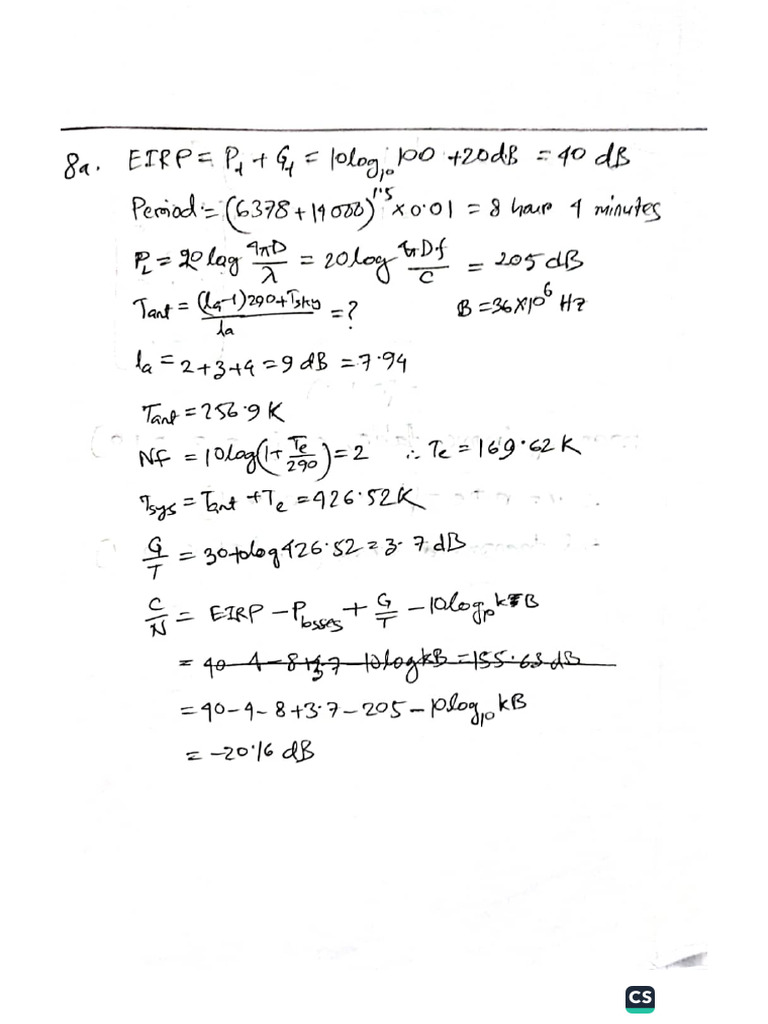 8a. EIRP = Pt + Gt = 10log10 100 + 20dB = 40 dB
Period = (6378+14000)^1.5 × 0.01 = 8 hour 4 minutes
PL = 20log 4πD/λ = 20log 4πDf/c = 205 dB
Tant = (la-1)290+Tsky/la = ? B = 36×10^6 Hz
la = 2+3+4 = 9 dB = 7.94
Tant = 256.9 K
NF = 10log(1+Te/290) = 2 ∴ Te = 169.62 K
Tsys = Tant + Te = 426.52K
G/T = 30-10log426.52 = 3.7 dB
C/N = EIRP - Plosses + G/T - 10log10 kB
= 40-4-8+3.7-10logkB = 155.63 dB
= 40-4-8+3.7-205-10log10 kB
= -20.16 dB
CS